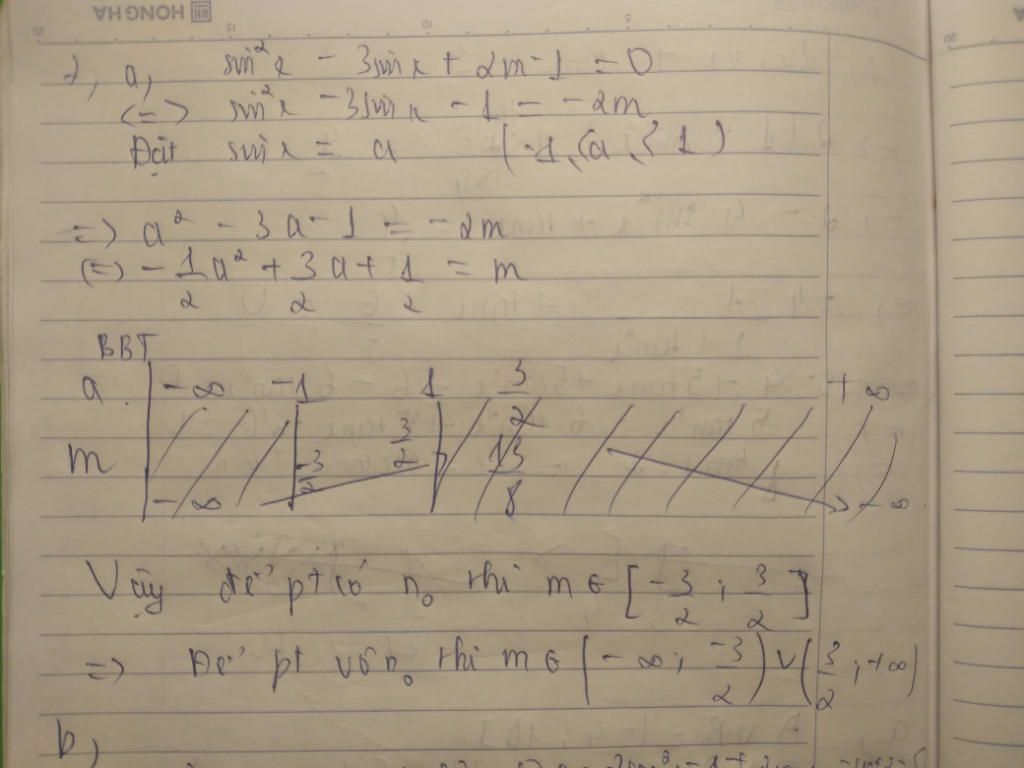 HONG HA
2, a, sin²x - 3sinx + 2m - 1 = 0
<=> sin²x - 3sinx - 1 = -2m
Đặt sinx = a (-1 ≤ a ≤ 1)
=> a² - 3a - 1 = -2m
<=> -1/2 a² + 3/2 a + 1/2 = m
BBT
a -∞ -1 1 3/2 +∞
m -∞ -3/2 3/2 13/8 -∞
Vậy để pt có n₀ thì m ∈ [-3/2 ; 3/2]
=> Để pt vô n₀ thì m ∈ (-∞; -3/2) ∪ (3/2; +∞)
b,